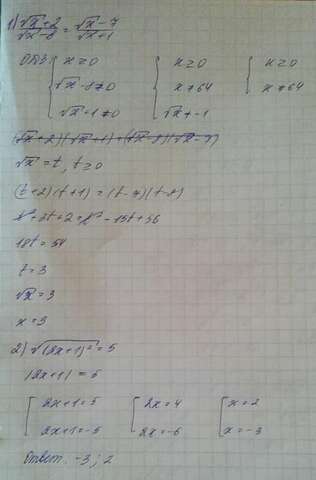 1) (√x+2)/(√x-8) = (√x-7)/(√x+1)
ОДЗ { x≥0 { x≥0 { x≥0
√x-8≠0 x≠64 x≠64
√x+1≠0 √x≠-1
(√x+2)(√x+1)=(√x-8)(√x-7)
√x=t, t≥0
(t+2)(t+1)=(t-7)(t-8)
t²+3t+2=t²-15t+56
18t=54
t=3
√x=3
x=3
2) √(2x+1)²=5
|2x+1|=5
[ 2x+1=5 [ 2x=4 [ x=2
2x+1=-5 2x=-6 x=-3
Ответ: -3; 2